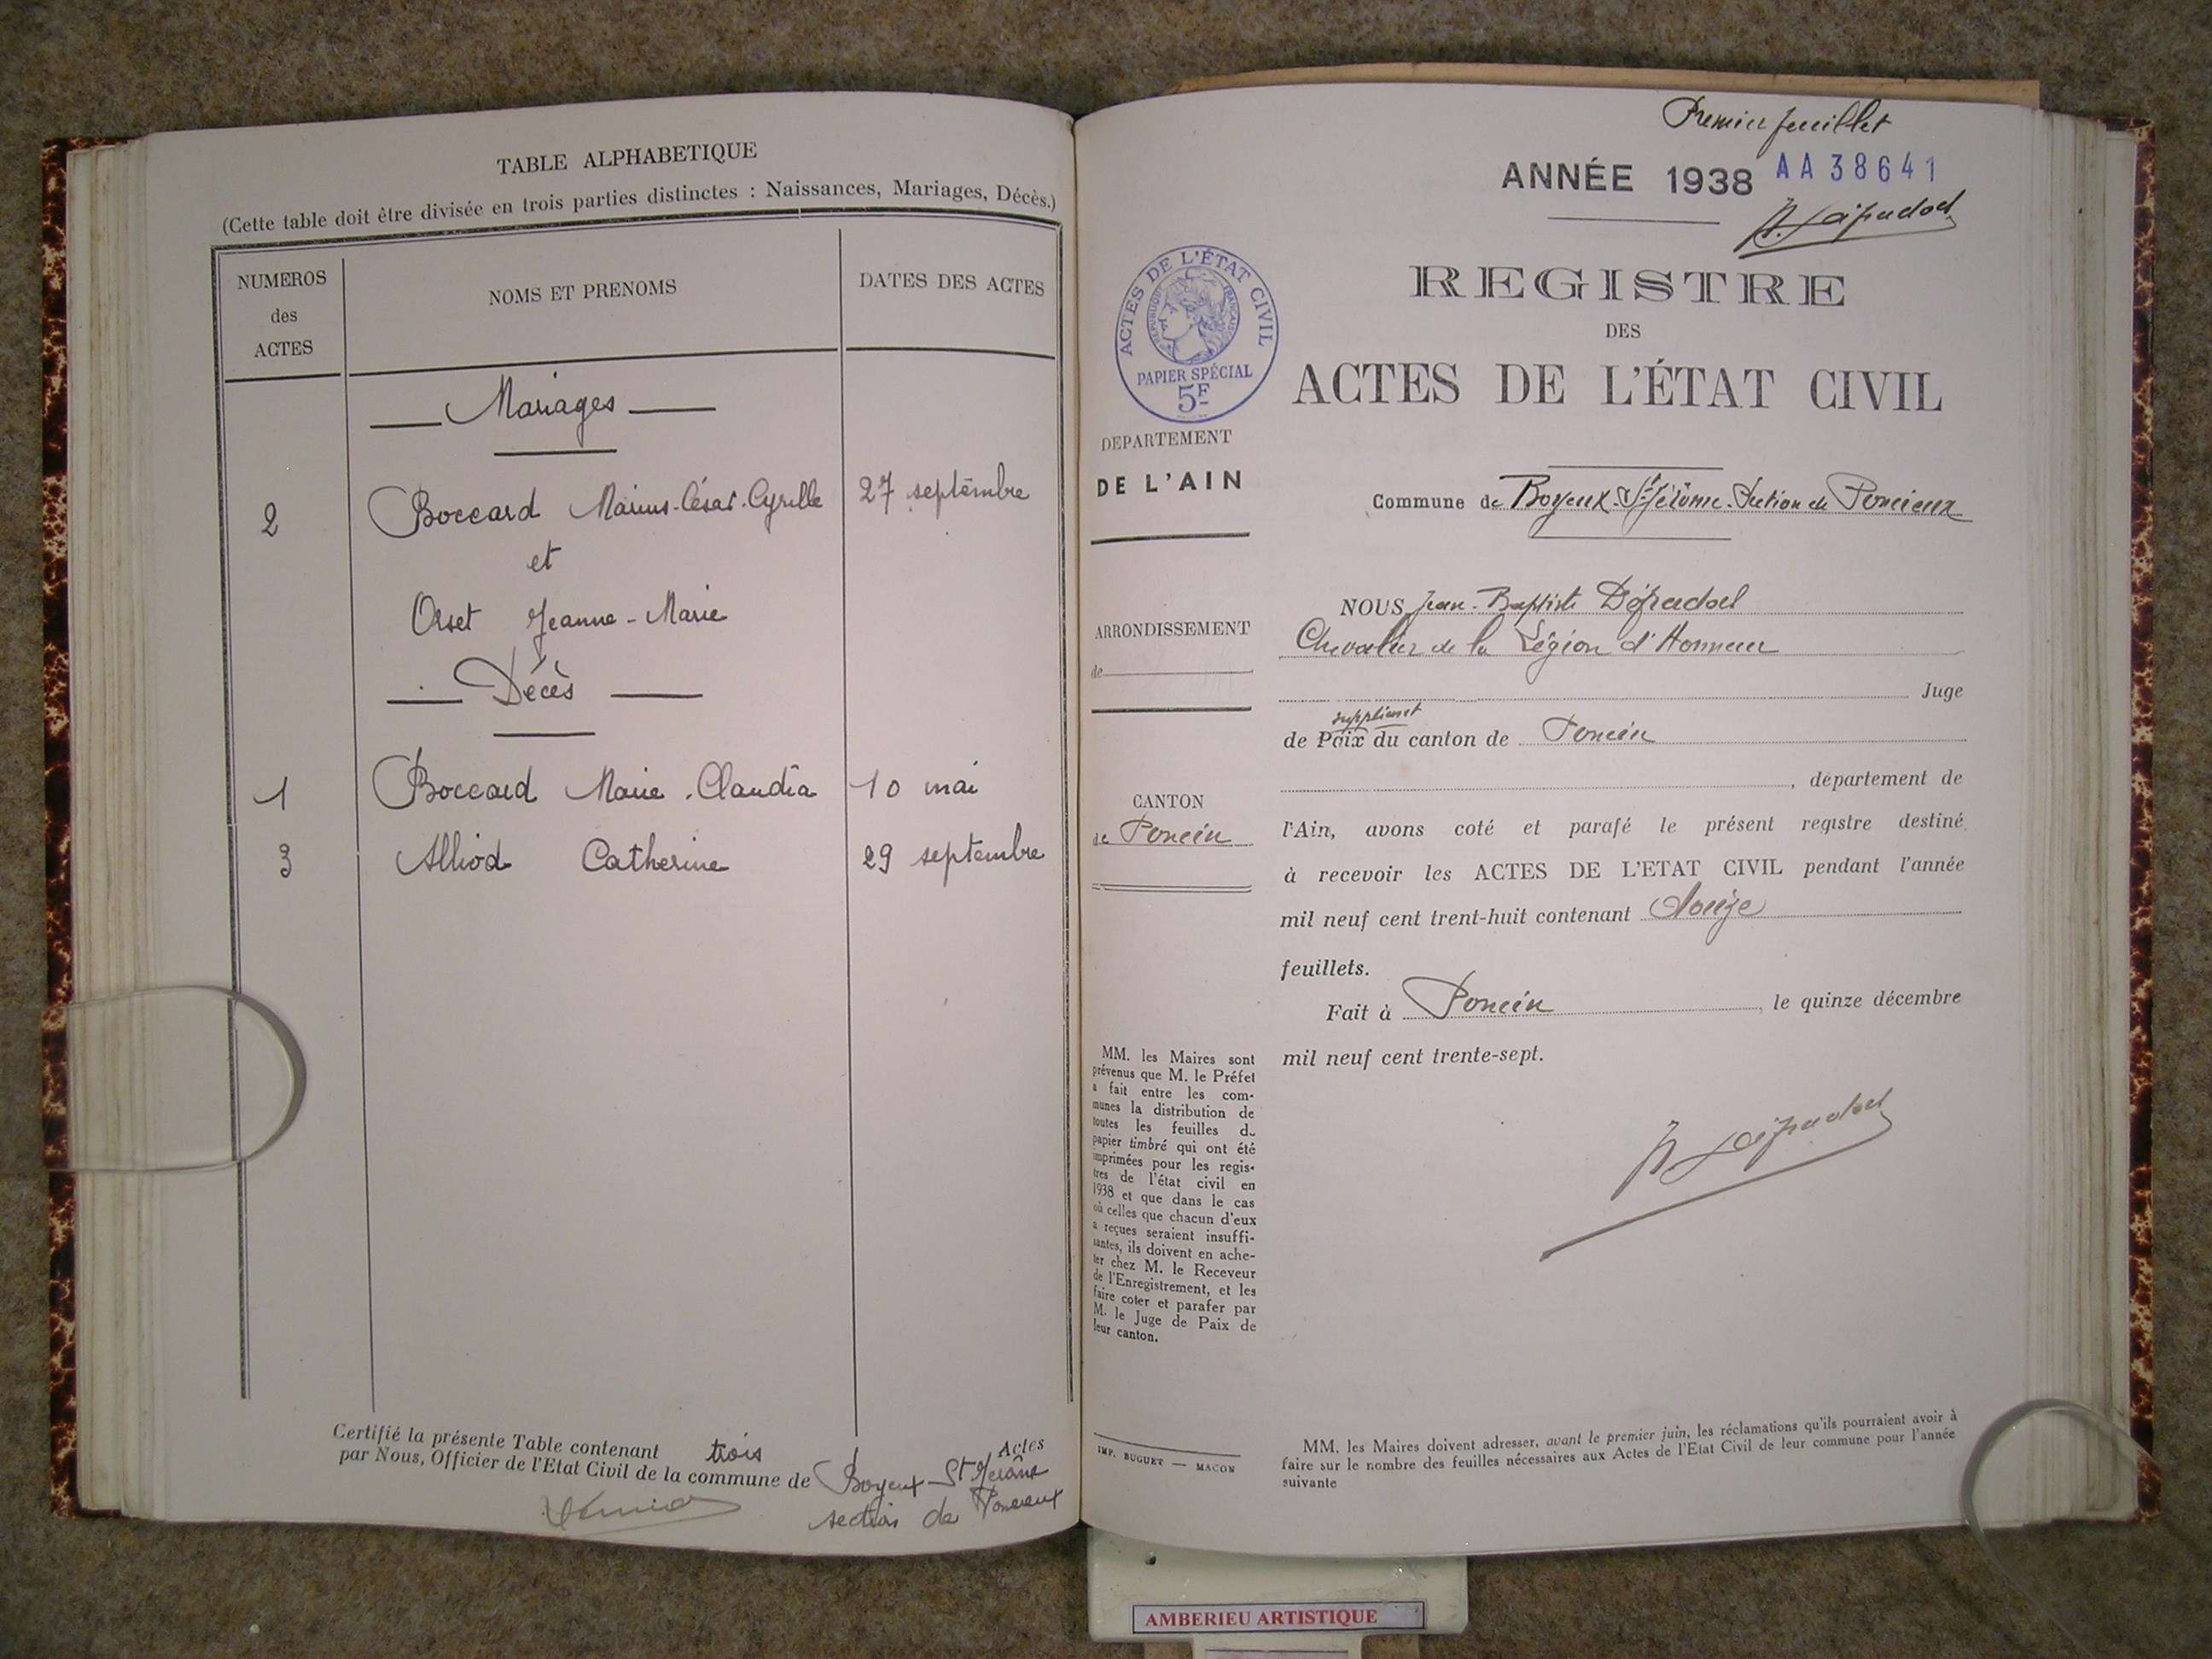 TABLE ALPHABETIQUE
(Cette table doit être divisée en trois parties distinctes : Naissances, Mariages, Décès.)
NUMEROS
des
ACTES
NOMS ET PRENOMS
DATES DES ACTES
Mariages
2 Boccard Marius-César-Cyrille 27 septembre
et
Orset Jeanne-Marie
Décès
1 Boccard Marie-Claudia 10 mai
3 Alliod Catherine 29 septembre
Certifié la présente Table contenant trois Actes
par Nous, Officier de l'Etat Civil de la commune de Boyeux-St Jérôme
section de Poncieux
Premier feuillet
ANNÉE 1938 AA38641
REGISTRE
DES
ACTES DE L'ÉTAT CIVIL
ACTES DE L'ÉTAT CIVIL
RÉPUBLIQUE FRANÇAISE
PAPIER SPÉCIAL
5F
DEPARTEMENT
DE L'AIN
ARRONDISSEMENT
de
CANTON
de Poncin
MM. les Maires sont
prévenus que M. le Préfet
a fait entre les com-
munes la distribution de
toutes les feuilles du
papier timbré qui ont été
imprimées pour les regis-
tres de l'état civil en
1938 et que dans le cas
où celles que chacun d'eux
a reçues seraient insuffi-
santes, ils doivent en ache-
ter chez M. le Receveur
de l'Enregistrement, et les
faire coter et parafer par
M. le Juge de Paix de
leur canton.
IMP. BUGUET — MACON
Commune de Boyeux-St Jérôme-Section de Poncieux
NOUS Jean-Baptiste
Chevalier de la Légion d'Honneur
Juge
suppléant
de Paix du canton de Poncin
, département de
l'Ain, avons coté et parafé le présent registre destiné
à recevoir les ACTES DE L'ETAT CIVIL pendant l'année
mil neuf cent trent-huit contenant douze
feuillets.
Fait à Poncin, le quinze décembre
mil neuf cent trente-sept.
MM. les Maires doivent adresser, avant le premier juin, les réclamations qu'ils pourraient avoir à
faire sur le nombre des feuilles nécessaires aux Actes de l'Etat Civil de leur commune pour l'année
suivante
AMBERIEU ARTISTIQUE